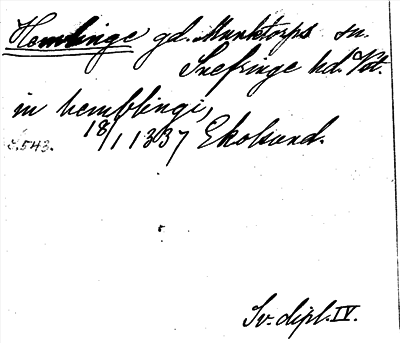 Hemlinge gd. Munktorps sn.
Snefringe hd. Vstm.
in hemblingi,
18/1 1337 Ekolsund.
s. 543.
Sv. dipl. IV.